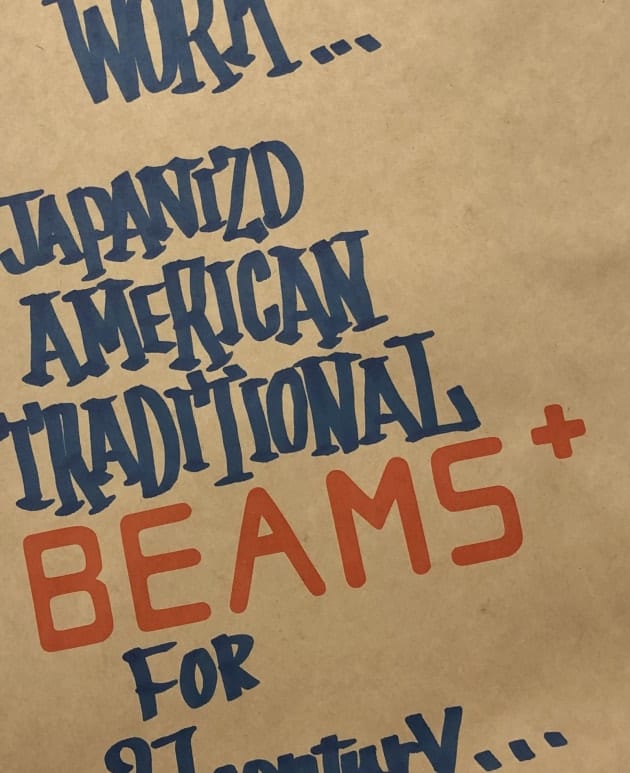 WORK...
JAPANIZD
AMERICAN
TRADITIONAL
BEAMS+
FOR
21 century...